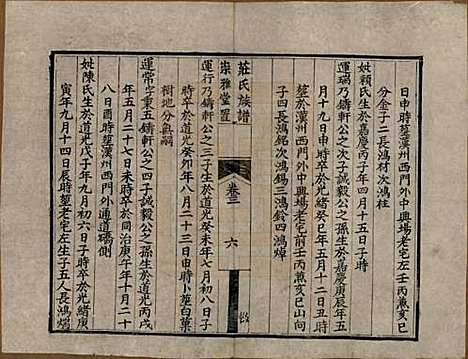 日申時葬漢州西門外中興場老宅左側丙亥巳
分金子二長鴻材次鴻柱
妣賴氏生於嘉慶丙子年四月十五日子時
運瑞乃鑄軒公之次子誠毅公之孫生於嘉慶庚辰年五
月十九日申時卒於光緒癸巳年五月十二日丑時
葬於漢州西門外中興場老宅前壬丙兼亥巳山向
子四長鴻銘次鴻錫三鴻鈴四鴻焯
莊氏族譜
崇雅堂置
卷三
六
運行乃鑄軒公之三子生於道光癸未年七月初八日子
時卒於道光癸卯年八月二十三日申時卜葬白菓
樹地分無嗣
運常字秉五鑄軒公之四子誠毅公之孫生於道光丙戌
年五月二十七日未時卒於同治庚午年十月二十
八日酉時葬漢州西門外通道碼側
妣陳氏生於道光戊子年九月初六日子時卒於光緒庚
寅年九月十四日辰時葬老宅左生子五人長鴻熠